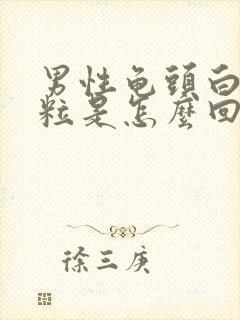 男性龟頭白
粒是怎麼回
徐三庚